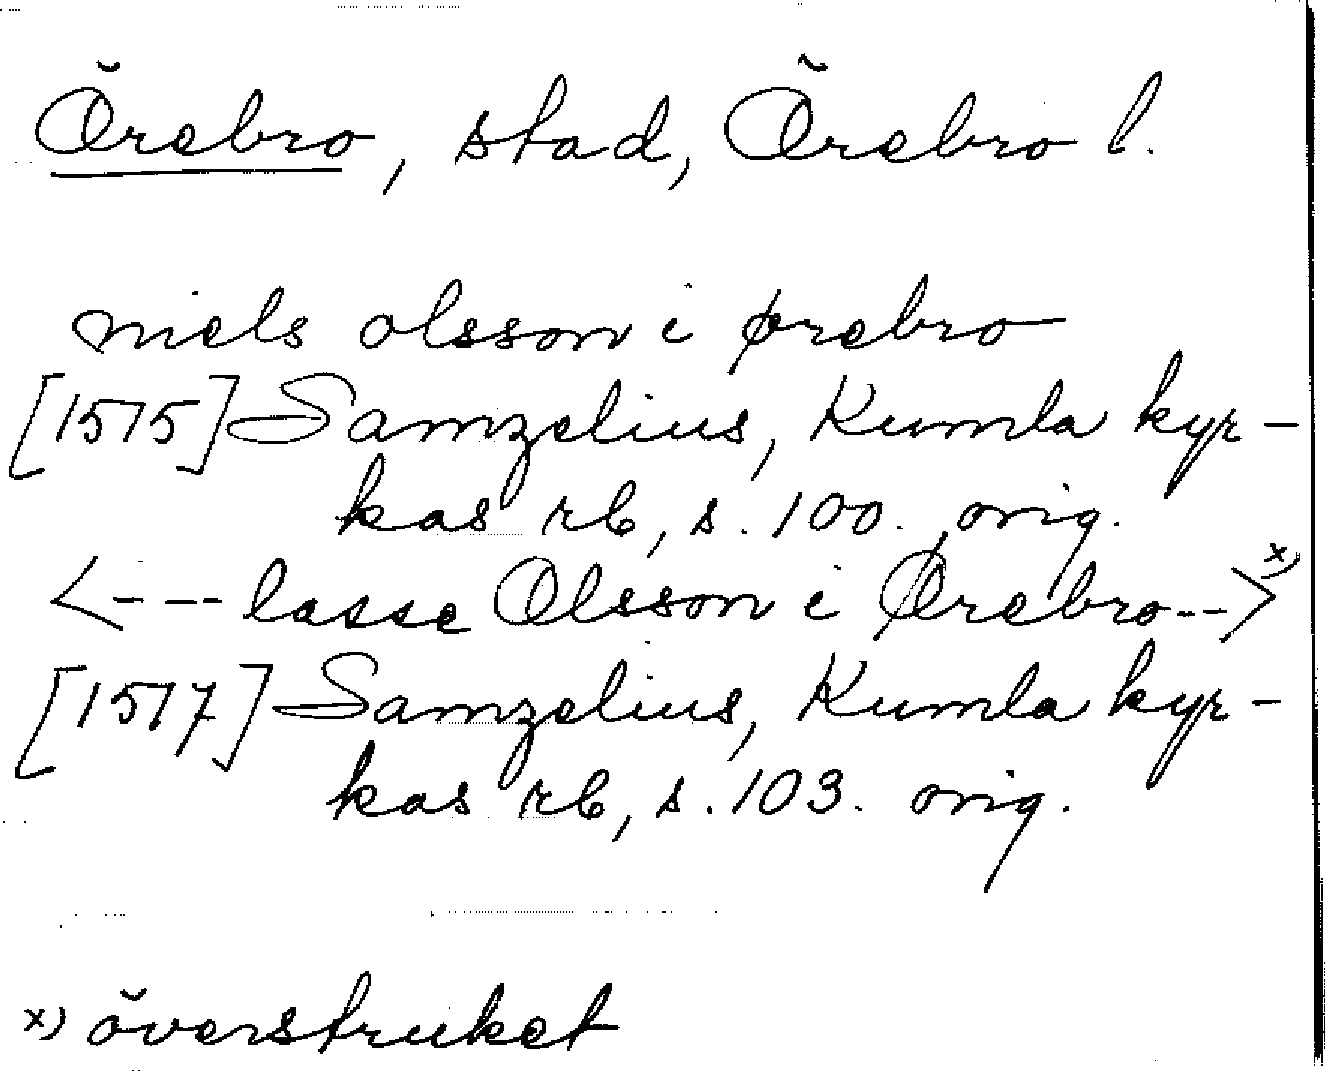 Örebro, stad, Örebro l.
niels olsson i ørebro
[1515] Samzelius, Kumla kyr-
kas rb, s. 100. orig.
<--- lasse Olsson i Ørebro-->x)
[1517] Samzelius, Kumla kyr-
kas rb, s. 103. orig.
x) överstruket